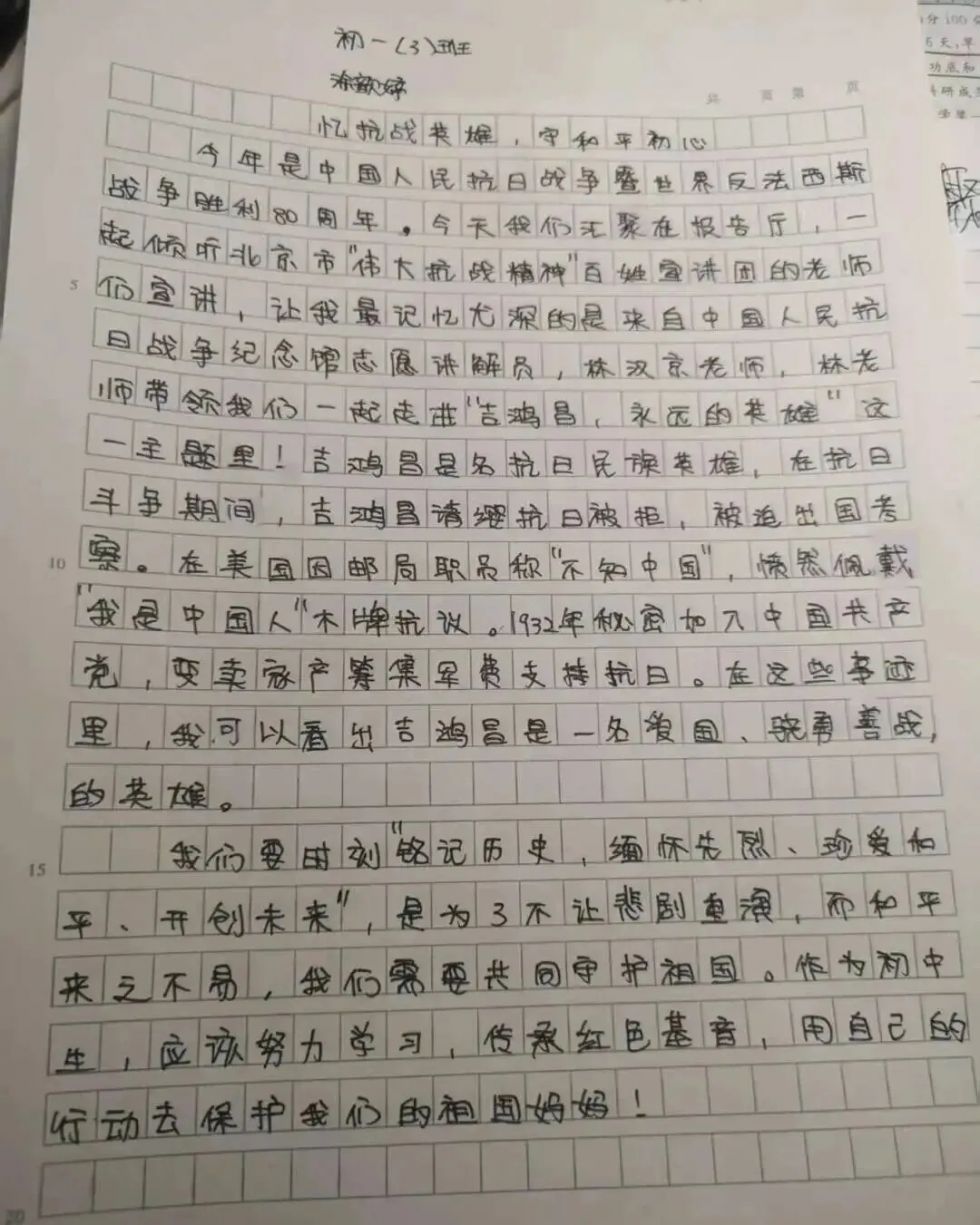 初一(3)班
忆抗战英雄，守和平初心
今年是中国人民抗日战争暨世界反法西斯
战争胜利80周年。今天我们汇聚在报告厅，一
起倾听北京市"伟大抗战精神"百姓宣讲团的老师
们宣讲，让我最记忆尤深的是来自中国人民抗
日战争纪念馆志愿讲解员，林汉京老师，林老
师带领我们一起走进"吉鸿昌，永远的英雄"这
一主题里！吉鸿昌是名抗日民族英雄，在抗日
斗争期间，吉鸿昌请缨抗日被拒，被迫出国考
察。在美国因邮局职员称"不知中国"，愤然佩戴
"我是中国人"木牌抗议。1932年秘密加入中国共产
党，变卖家产筹集军费支持抗日。在这些事迹
里，我可以看出吉鸿昌是一名爱国、骁勇善战，
的英雄。
我们要时刻"铭记历史，缅怀先烈、珍爱和
平、开创未来"，是为了不让悲剧重演，而和平
来之不易，我们需要共同守护祖国。作为初中
生，应该努力学习，传承红色基音，用自己的
行动去保护我们的祖国妈妈！
共 页 第 页
5
10
15
20
分100
5天,早
功底和